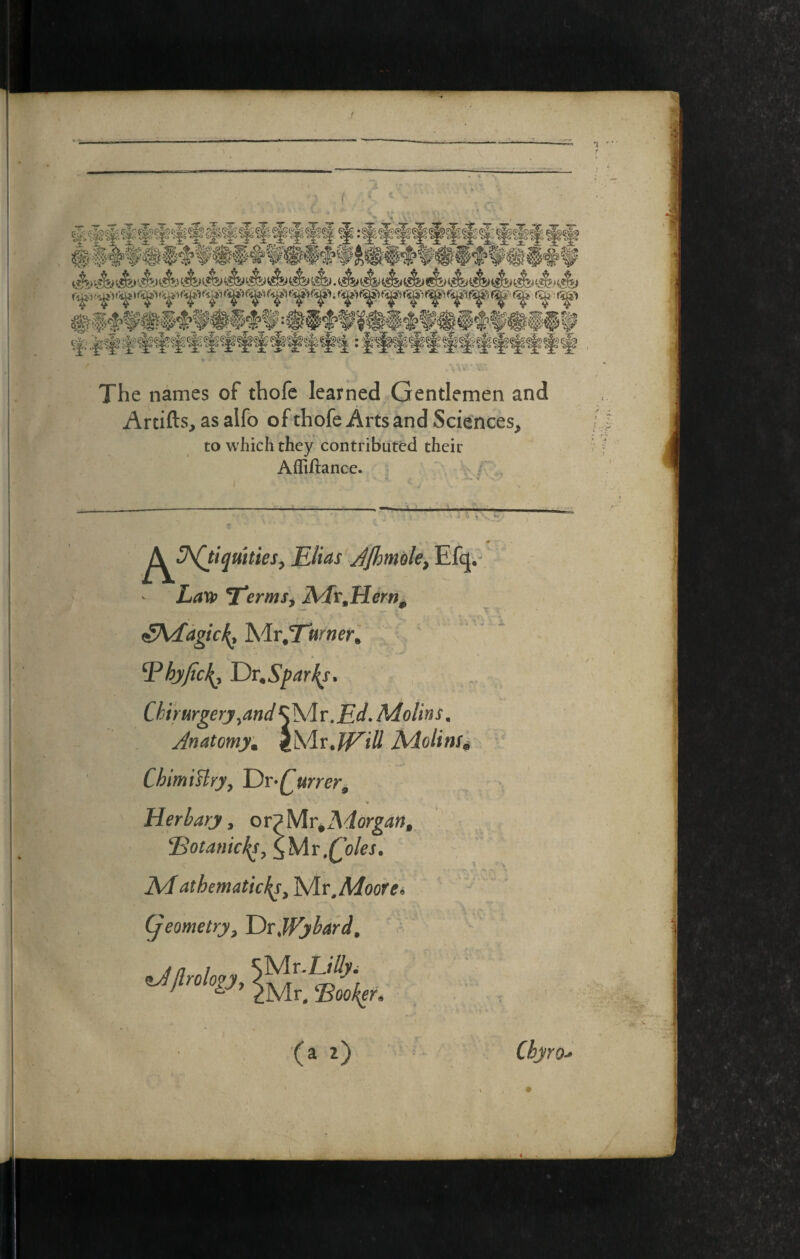 The names of thoſe learned Gentlemen and
Artiſts, as alſo of thoſe Arts and Sciences,
to which they contributed their
Aſſiſtance.
ANtiquities, Elias Aſhmole, Eſq.
Law Terms, Mr. Hern.
Magick, Mr. Turner.
Phyſick, Dr. Sparks.
Chirurgery, and { Mr. Ed. Molins.
Anatomy. { Mr. Will Molins.
Chimiſtry, Dr. Currer.
Herbary, or { Mr. Morgan,
Botanicks, { Mr. Coles.
Mathematicks, Mr. Moore.
Geometry, Dr. Wybard.
Aſtrology, { Mr. Lilly.
{ Mr. Booker.
(a 2) Chyro-